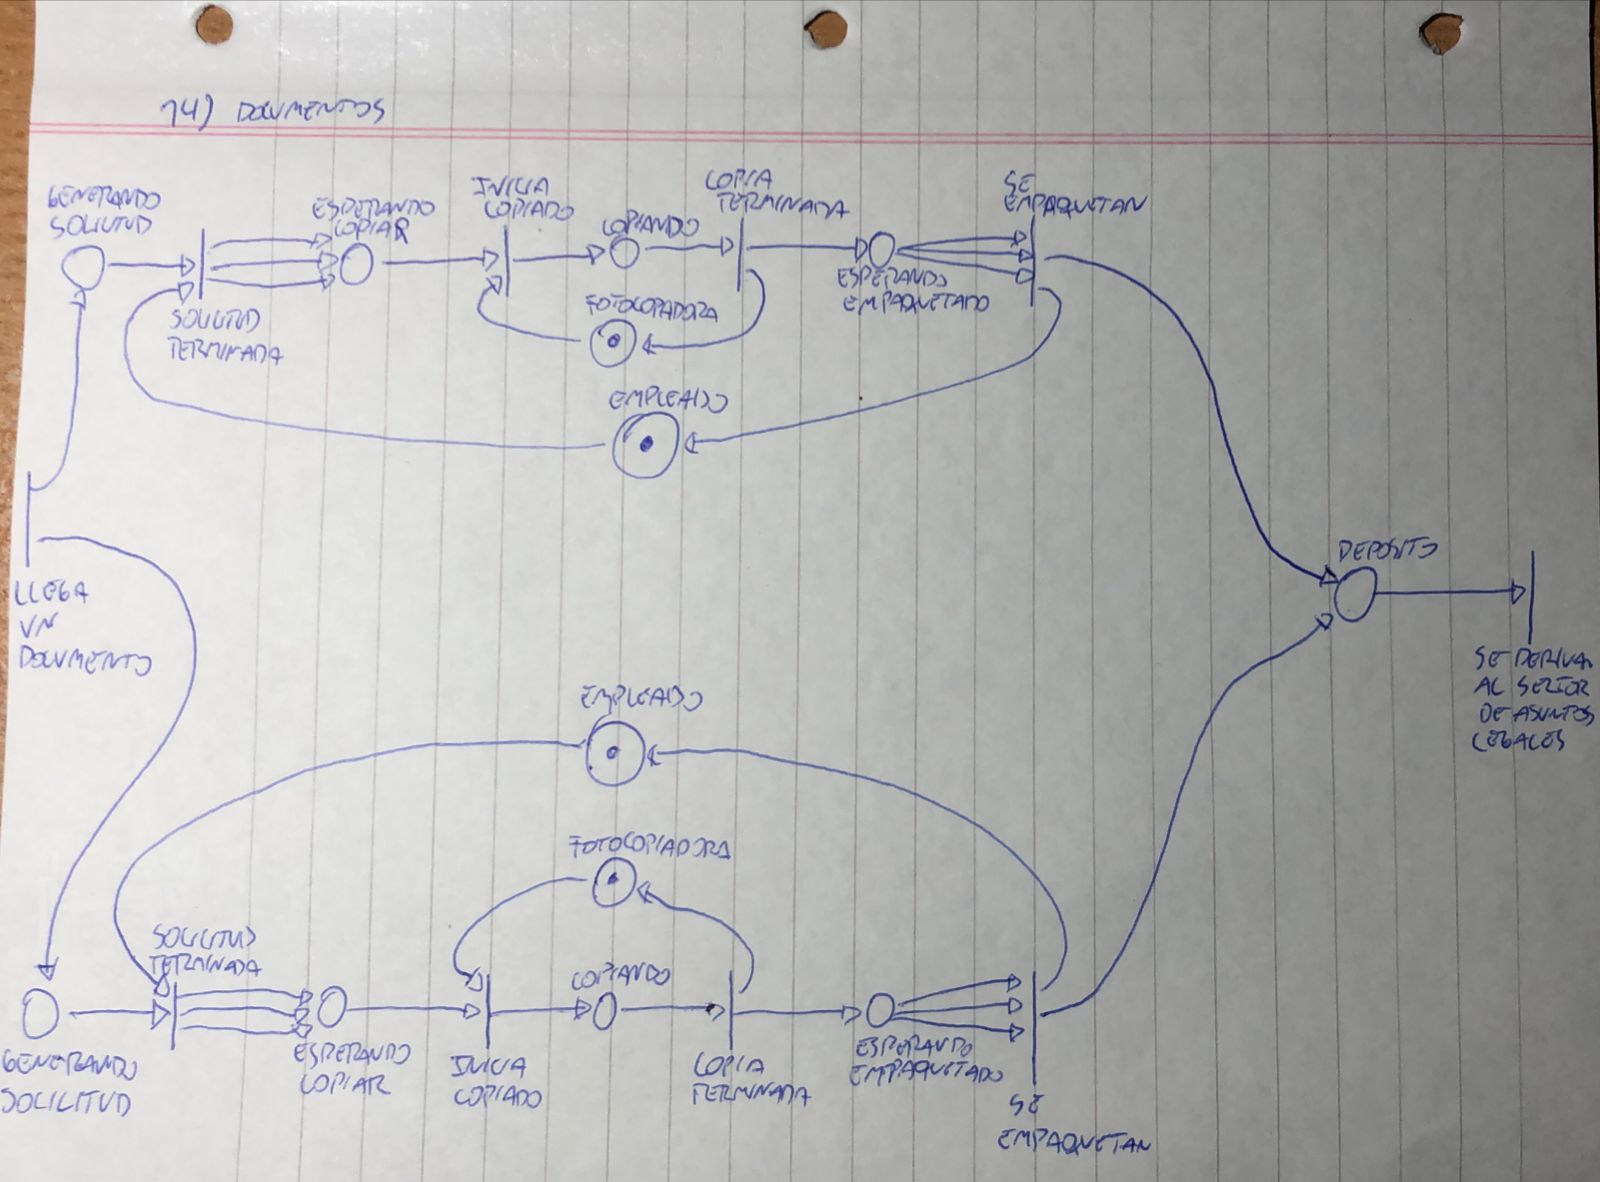 14) DOCUMENTOS
GENERANDO
SOLICITUD
ESPERANDO
COPIAR
INICIA
COPIADO
COPIANDO
COPIA
TERMINADA
SE
EMPAQUETAN
SOLICITUD
TERMINADA
FOTOCOPADORA
ESPERANDO
EMPAQUETADO
EMPLEADO
LLEGA
UN
DOCUMENTO
DEPOSITO
SE DERIVA
AL SECTOR
DE ASUNTOS
LEGALES
EMPLEADO
FOTOCOPIADORA
SOLICITUD
TERMINADA
COPIANDO
GENERANDO
SOLICITUD
ESPERANDO
COPIAR
INICIA
COPIADO
COPIA
TERMINADA
ESPERANDO
EMPAQUETADO
SE
EMPAQUETAN